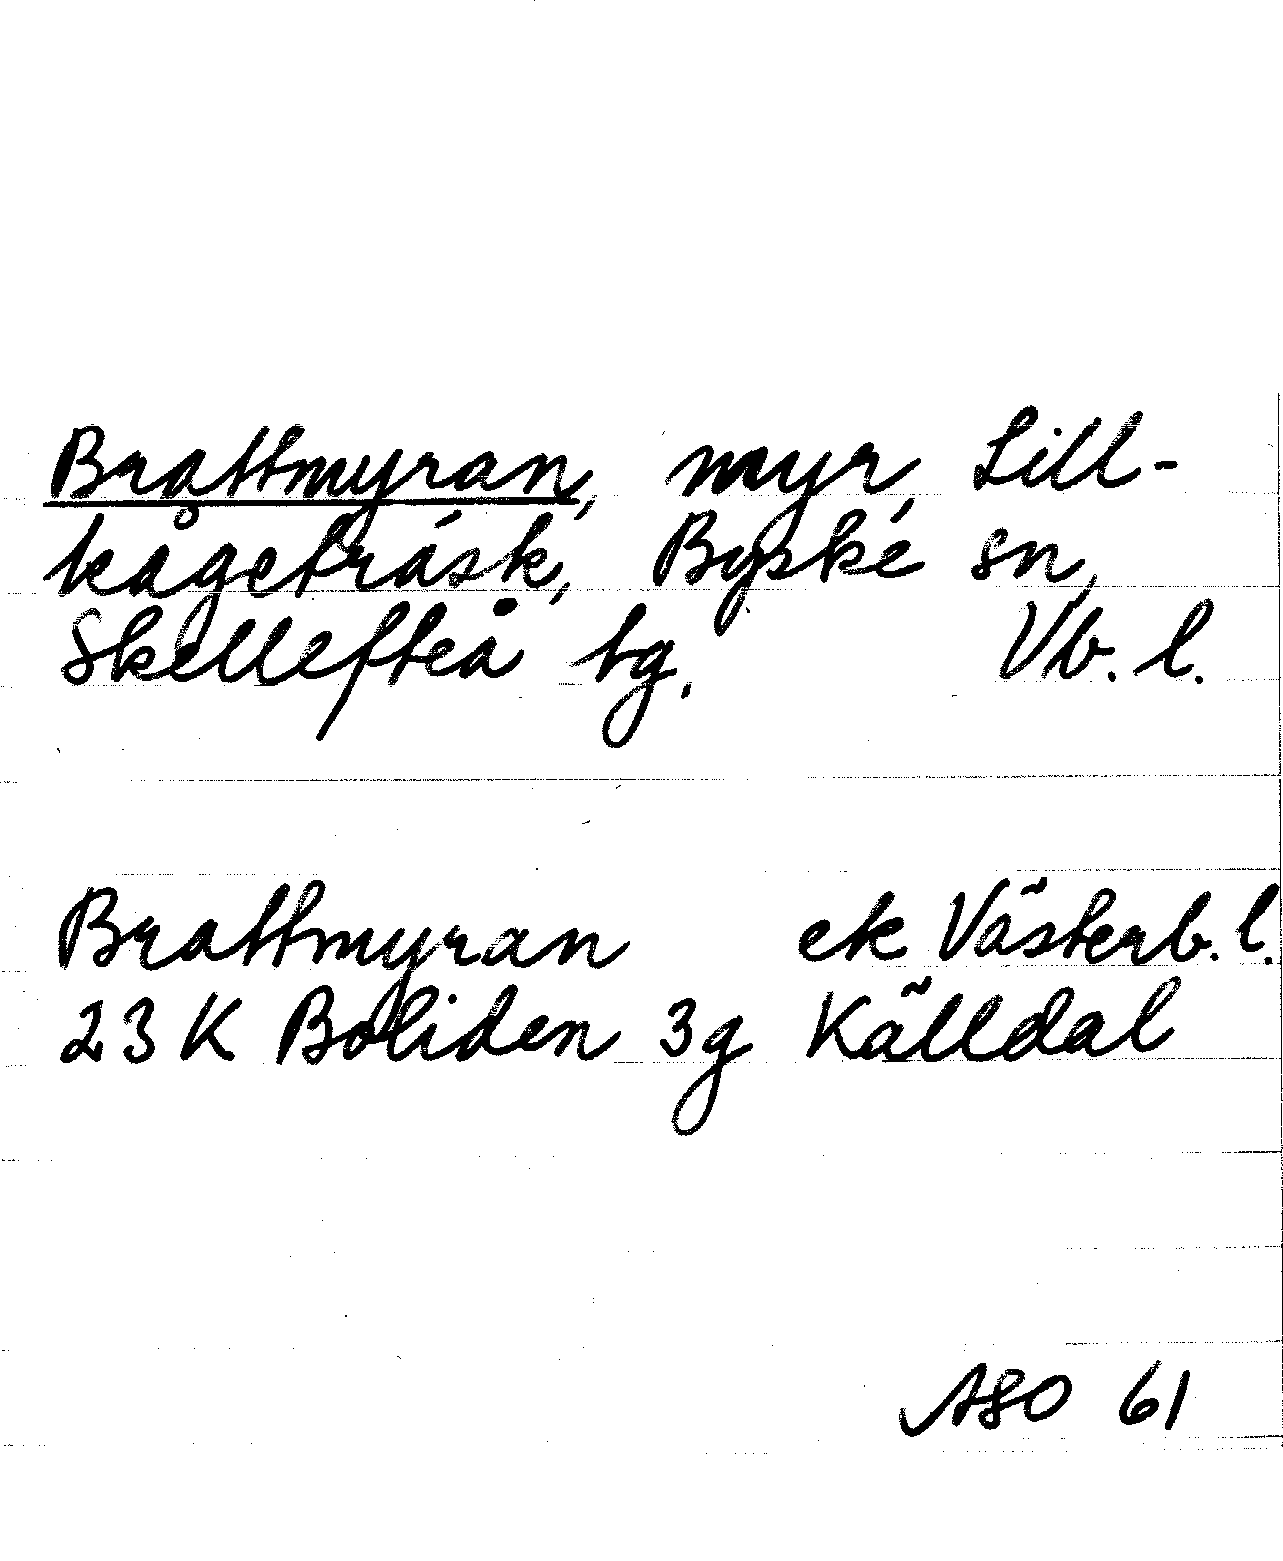 Brattmyran, myr, Lill-
kågeträsk, Byske sn,
Skellefteå tg. Vb. l.
Brattmyran ek Västerb. l.
23 K Boliden 3g Källdal
ASO 61